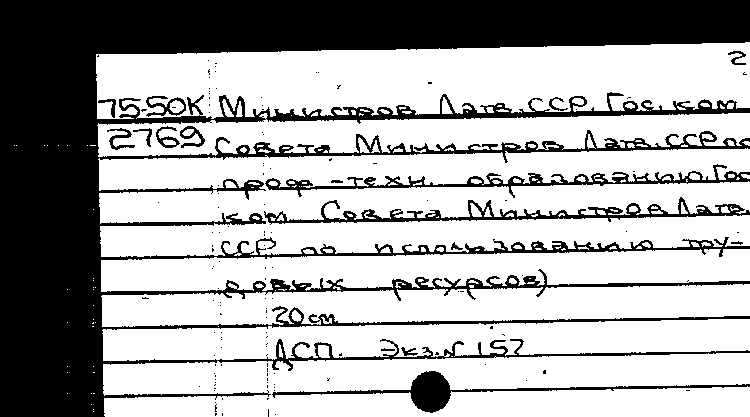 2
75-50К Министров Латв.ССР, Гос. ком
2769 Совета Министров Латв.ССР по
проф-техн. образованию, Гос
ком Совета Министров Латв.
ССР по использованию тру-
довых ресурсов)
20 см
ДСП. Экз.N 157